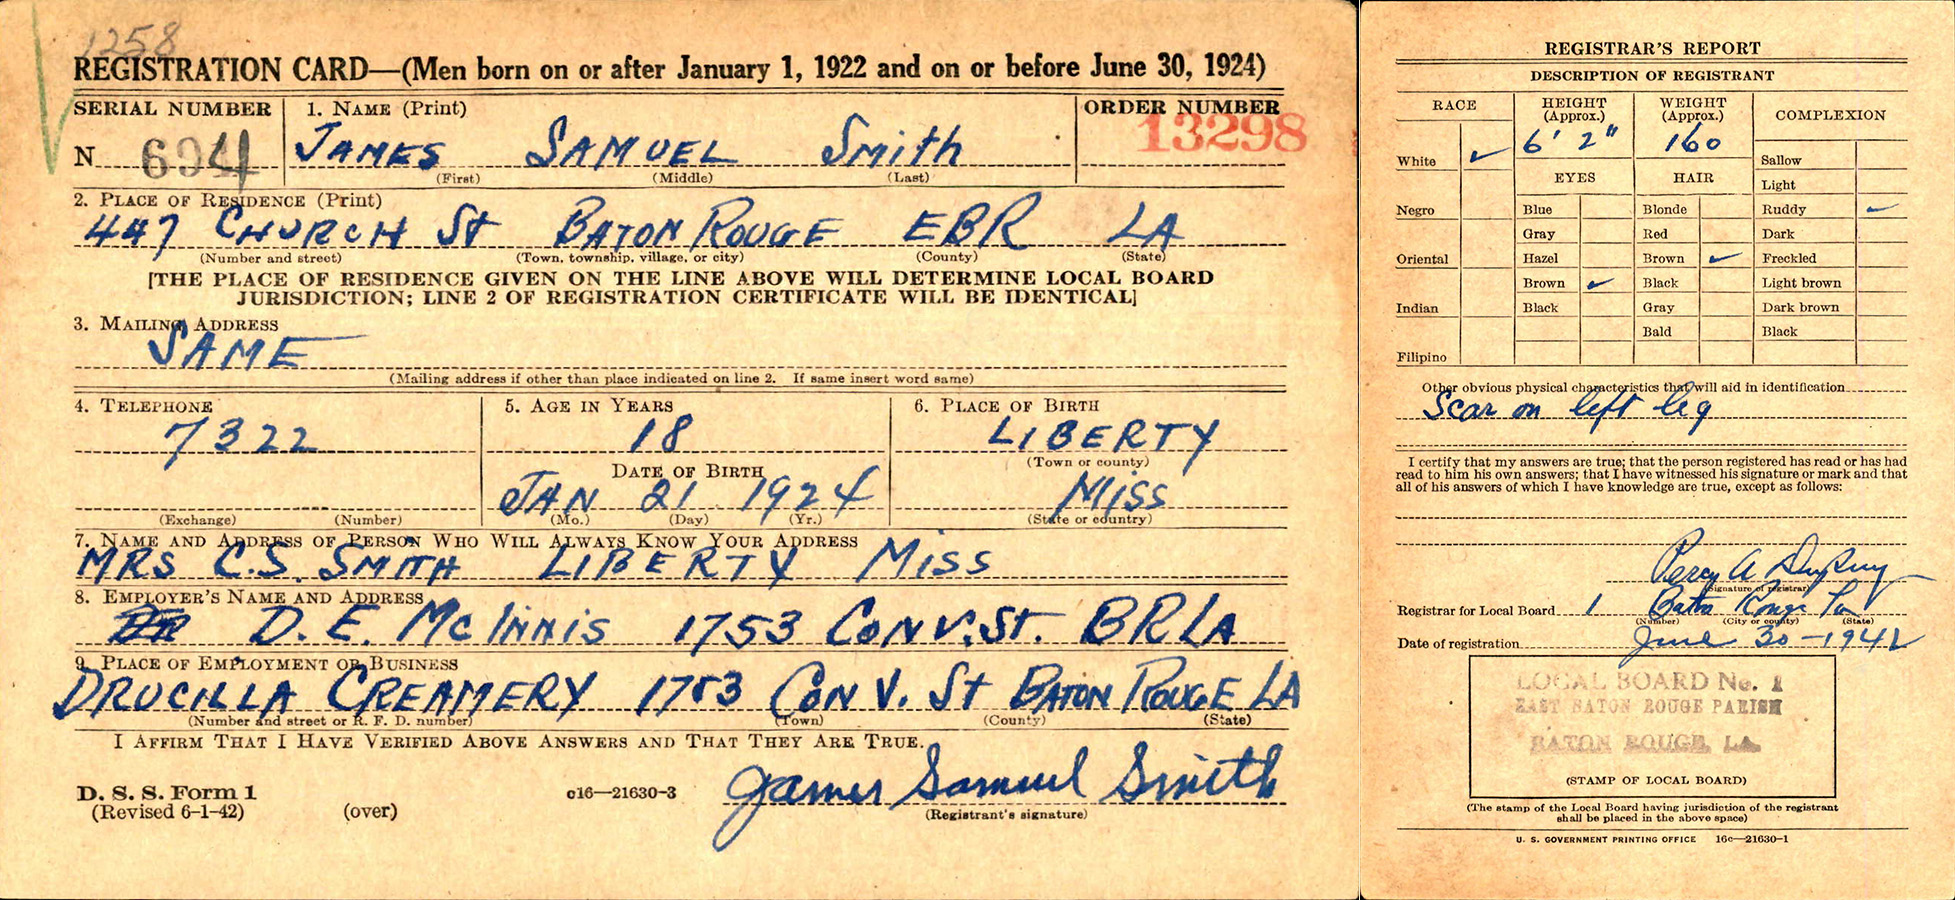 1258
REGISTRATION CARD—(Men born on or after January 1, 1922 and on or before June 30, 1924)
SERIAL NUMBER 1. NAME (Print) ORDER NUMBER
13298
N JAMES SAMUEL Smith
(First) (Middle) (Last)
2. PLACE OF RESIDENCE (Print)
447 CHURCH St BATON ROUGE EBR LA
(Number and street) (Town, township, village, or city) (County) (State)
[THE PLACE OF RESIDENCE GIVEN ON THE LINE ABOVE WILL DETERMINE LOCAL BOARD
JURISDICTION; LINE 2 OF REGISTRATION CERTIFICATE WILL BE IDENTICAL]
3. MAILING ADDRESS
SAME
(Mailing address if other than place indicated on line 2. If same insert word same)
4. TELEPHONE 5. AGE IN YEARS 6. PLACE OF BIRTH
7322 18 LIBERTY
(Town or county)
DATE OF BIRTH
JAN 21 1924 MISS
(Exchange) (Number) (Mo.) (Day) (Yr.) (State or country)
7. NAME AND ADDRESS OF PERSON WHO WILL ALWAYS KNOW YOUR ADDRESS
MRS C.S. SMITH LIBERTY MISS
8. EMPLOYER'S NAME AND ADDRESS
D. E. McINNIS 1753 CONV. St. BR LA
9. PLACE OF EMPLOYMENT OR BUSINESS
DRUCILLA CREAMERY 1753 CONV. St BATON ROUGE LA
(Number and street or R. F. D. number) (Town) (County) (State)
I AFFIRM THAT I HAVE VERIFIED ABOVE ANSWERS AND THAT THEY ARE TRUE.
James Samuel Smith
D. S. S. Form 1 c16—21630-3
(Revised 6-1-42) (over) (Registrant's signature)
REGISTRAR'S REPORT
DESCRIPTION OF REGISTRANT
RACE HEIGHT (Approx.) WEIGHT (Approx.) COMPLEXION
6' 2" 160
White ✓ Sallow
EYES HAIR Light
Negro Blue Blonde Ruddy ✓
Gray Red Dark
Oriental Hazel Brown ✓ Freckled
Brown ✓ Black Light brown
Indian Black Gray Dark brown
Bald Black
Filipino
Other obvious physical characteristics that will aid in identification
Scar on left leg
I certify that my answers are true; that the person registered has read or has had
read to him his own answers; that I have witnessed his signature or mark and that
all of his answers of which I have knowledge are true, except as follows:
Percy A
(Signature of registrar)
Registrar for Local Board 1 Baton Rouge La
(Number) (City or county) (State)
Date of registration June 30 - 1942
LOCAL BOARD No. 1
EAST BATON ROUGE PARISH
BATON ROUGE, LA.
(STAMP OF LOCAL BOARD)
(The stamp of the Local Board having jurisdiction of the registrant
shall be placed in the above space)
U. S. GOVERNMENT PRINTING OFFICE 16c—21630-1